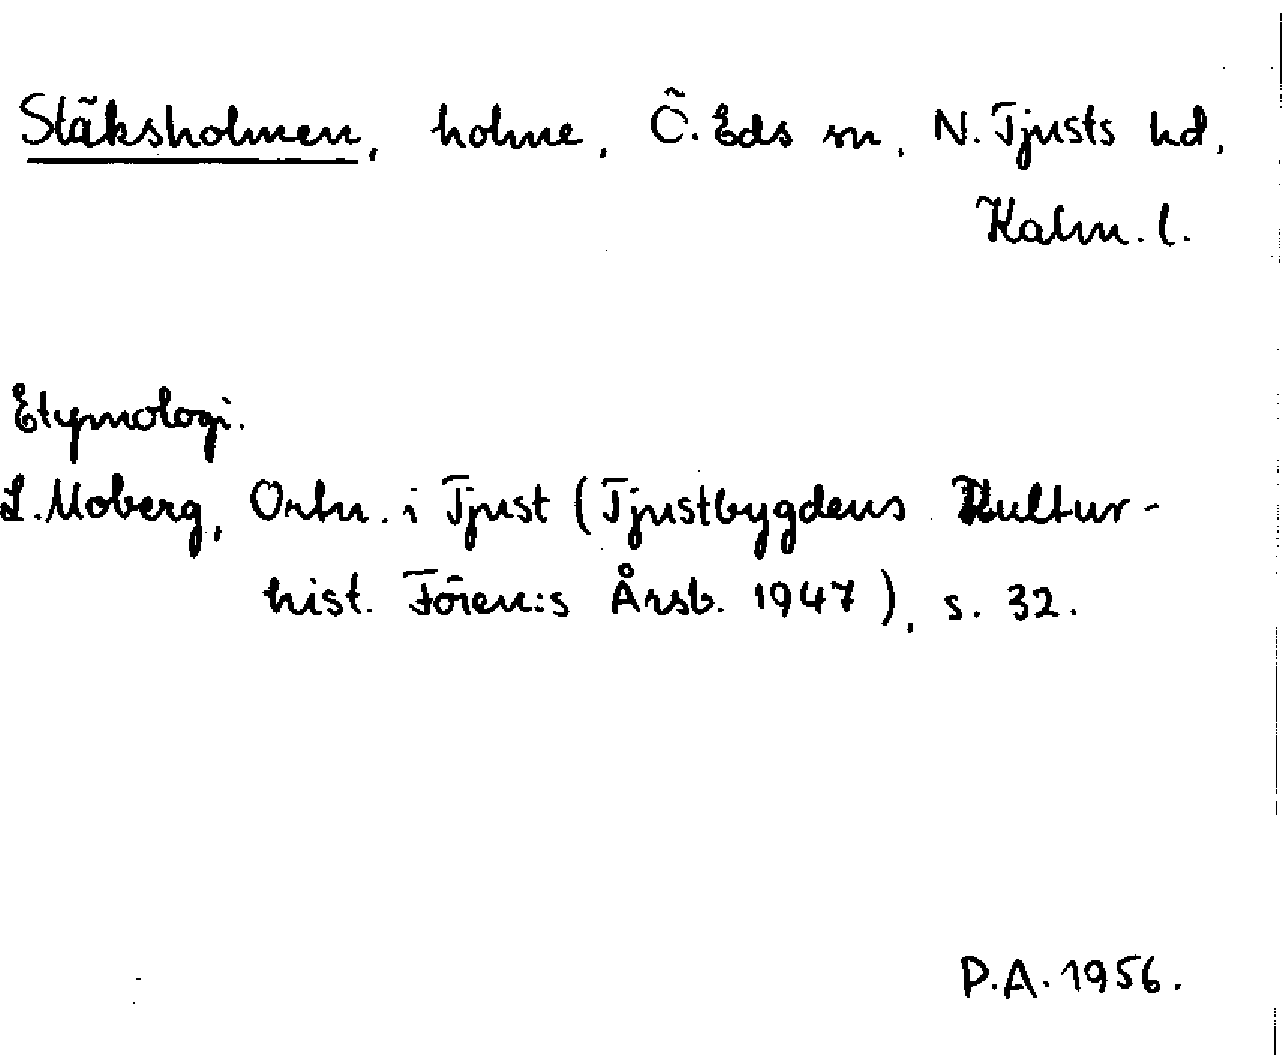 Stäksholmen, holme, Ö. Eds sn, N. Tjusts hd,
Kalm. l.
Etymologi.
L. Moberg, Ortn. i Tjust (Tjustbygdens Kultur-
hist. Fören:s Årsb. 1947), s. 32.
P.A. 1956.